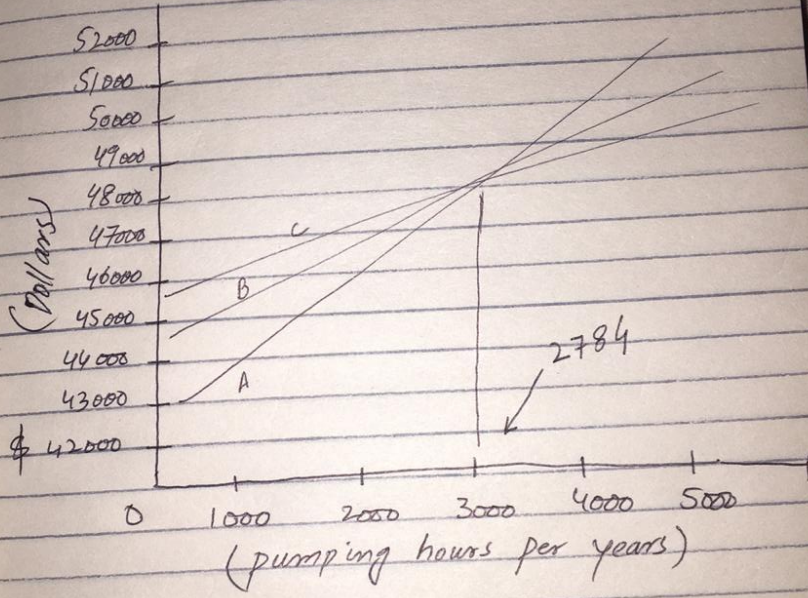 52000
51000
50000
49000
48000
47000
46000
45000
44000
43000
$ 42000
(Dollars)
C
B
A
2784
0 1000 2000 3000 4000 5000
(pumping hours per years)